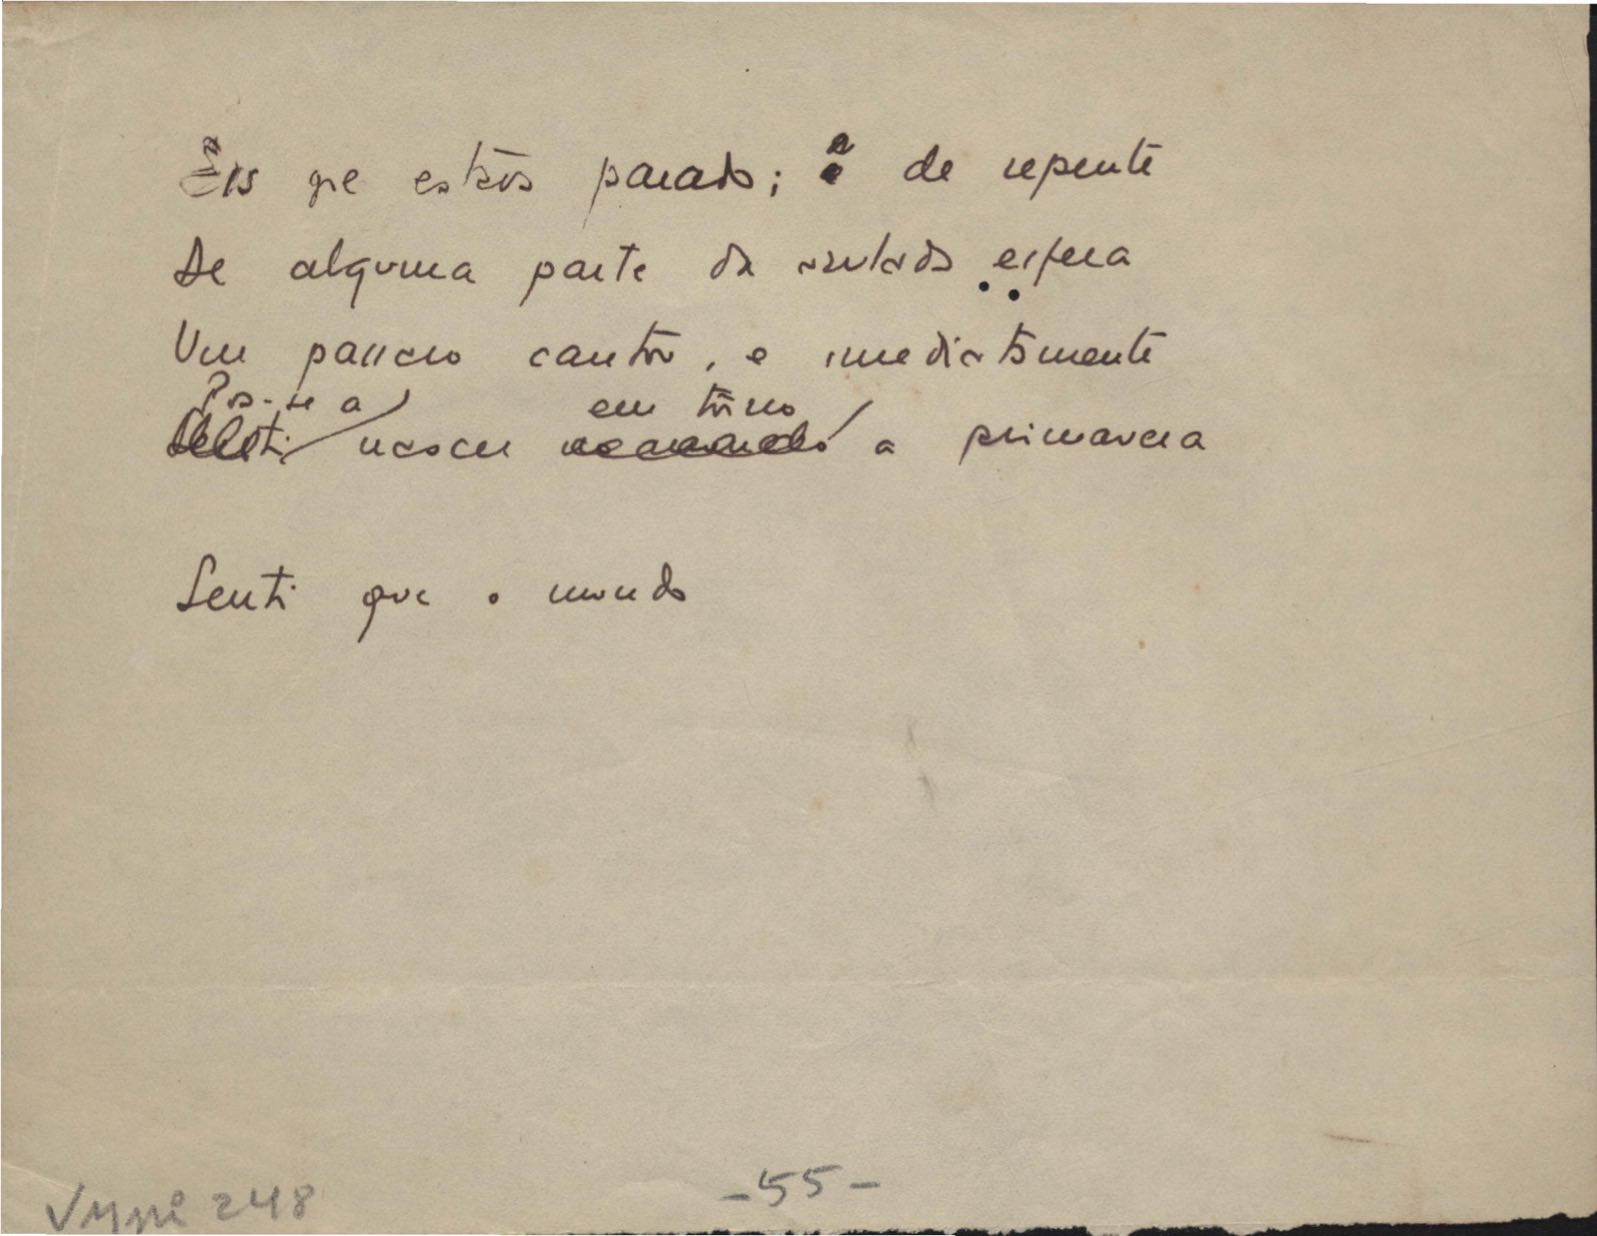 Eis que estás parado; e de repente
De alguma parte da azulada esfera
Um pássaro cantou, e imediatamente
Pos-se a em tôrno
nascer a primavera
Senti que o mundo
-55-
248